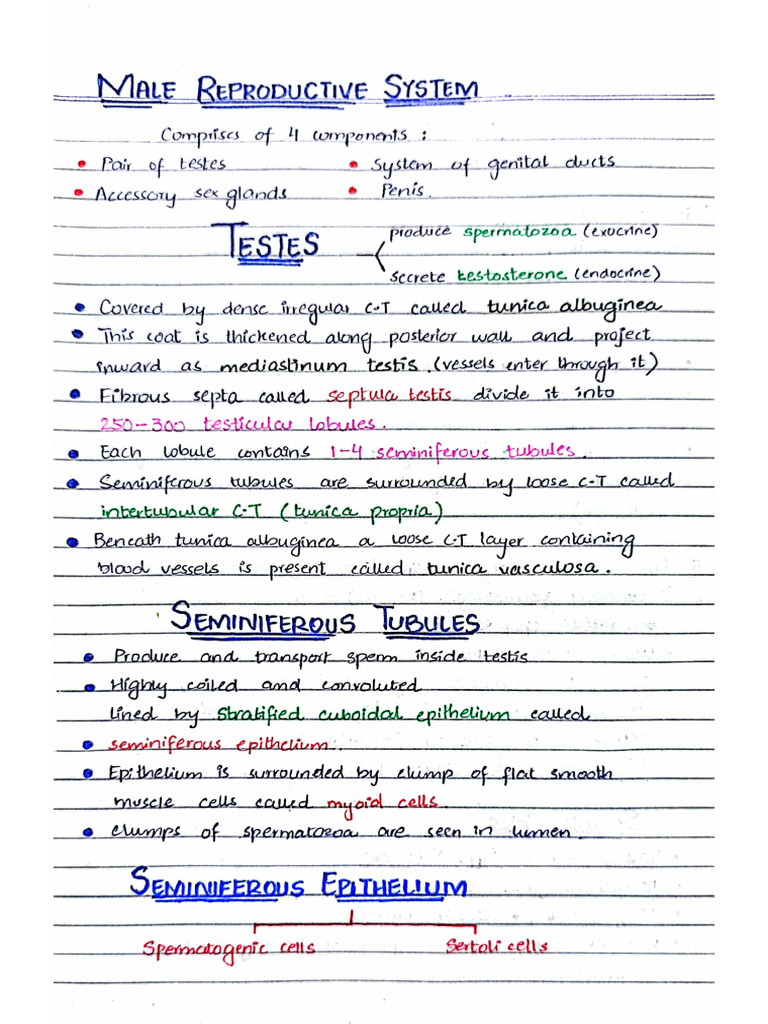 MALE REPRODUCTIVE SYSTEM
Comprises of 4 components :
• Pair of testes • System of genital ducts
• Accessory sex glands • Penis.
TESTES produce spermatozoa (exocrine)
secrete testosterone (endocrine)
• Covered by dense irregular C.T called tunica albuginea
• This coat is thickened along posterior wall and project
inward as mediastinum testis. (vessels enter through it)
• Fibrous septa called septula testis divide it into
250-300 testicular lobules.
• Each lobule contains 1-4 seminiferous tubules.
• Seminiferous tubules are surrounded by loose C.T called
intertubular C.T (tunica propria)
• Beneath tunica albuginea a loose C.T layer containing
blood vessels is present called tunica vasculosa.
SEMINIFEROUS TUBULES
• Produce and transport sperm inside testis
• Highly coiled and convoluted
lined by stratified cuboidal epithelium called
• seminiferous epithelium.
• Epithelium is surrounded by clump of flat smooth
muscle cells called myoid cells.
• clumps of spermatozoa are seen in lumen.
SEMINIFEROUS EPITHELIUM
Spermatogenic cells Sertoli cells